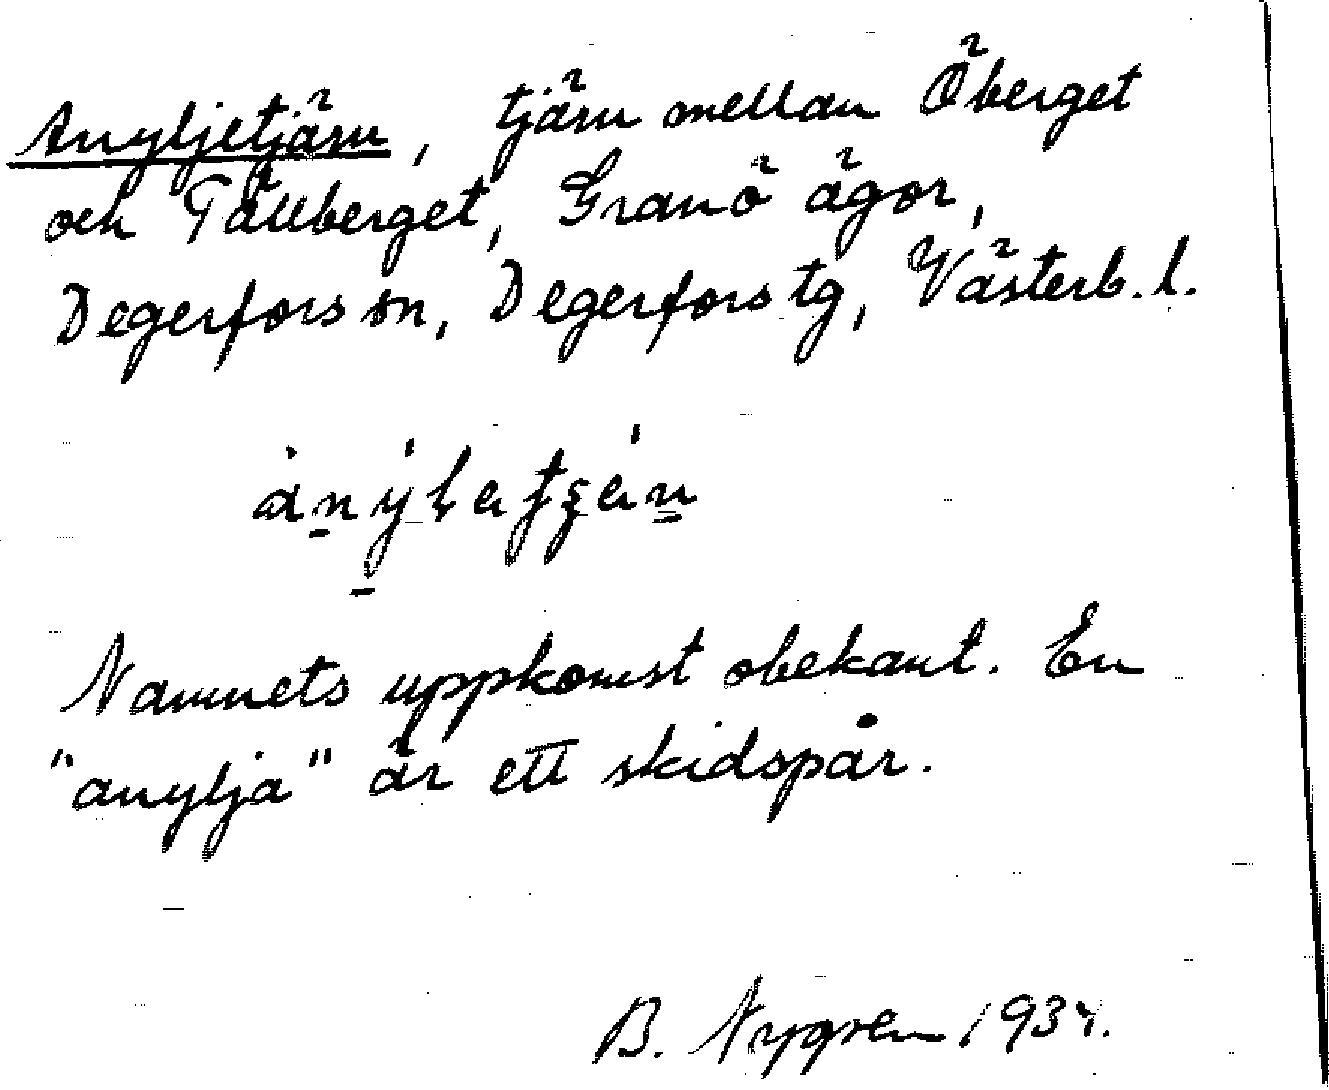 Anyljetjärn, tjärn mellan Öberget
och Tällberget, Granö ägor,
Degerfors sn, Degerfors tg, Västerb. l.
Namnets uppkomst obekant. En
"anylja" är ett skidspår.
B. Nygren 1934.